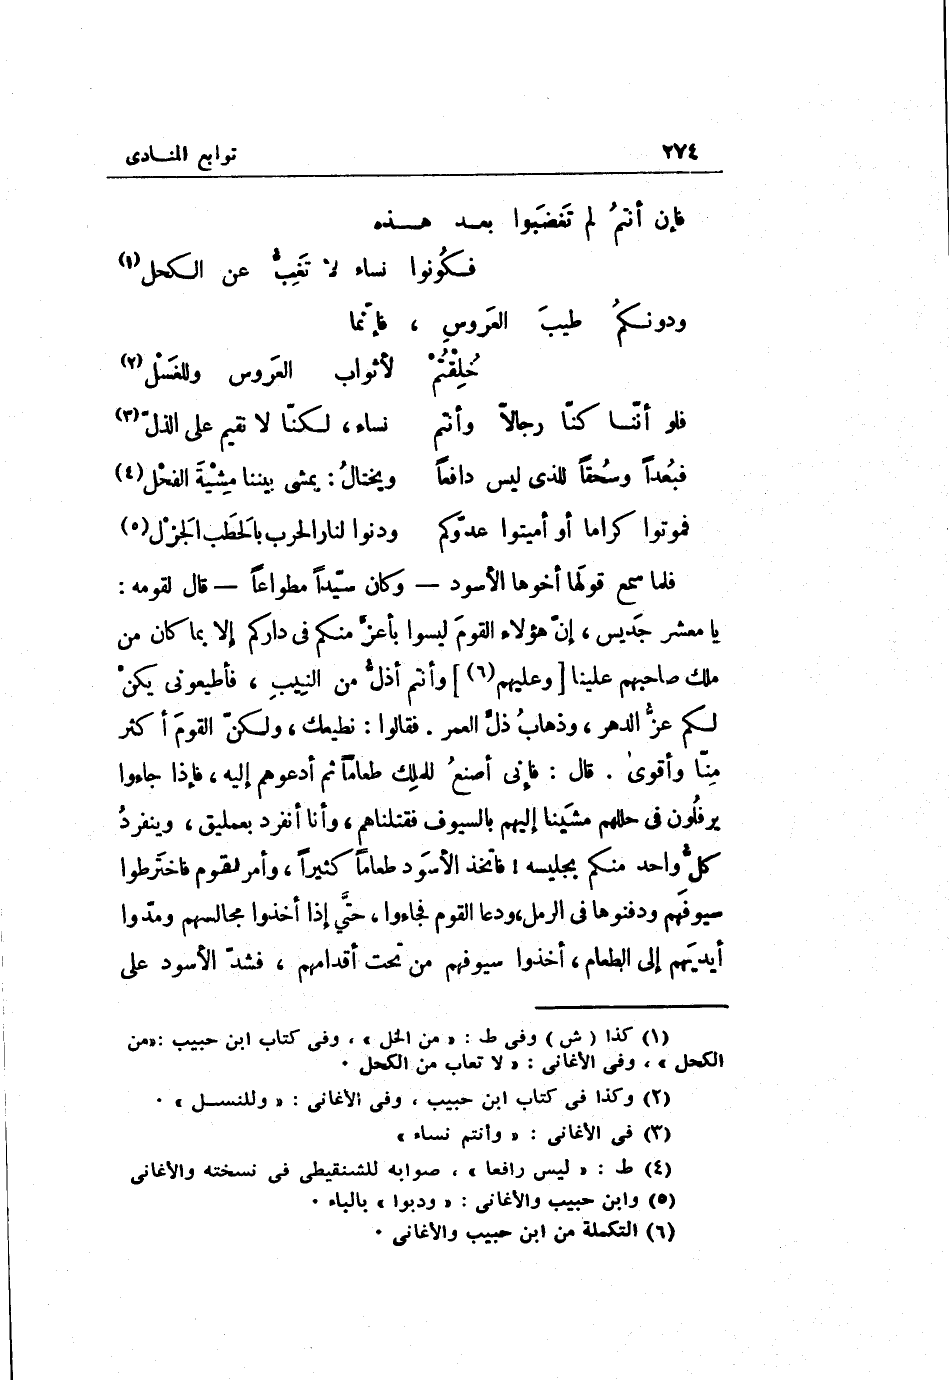 ٢٧٤
توابع المنادى
فإن أنتمُ لم تَغضَبوا بعد هذه
فكُونوا نساء لا تَغِبُّ عن الكحل (١)
ودونكمُ طيبَ العَروسِ ، فإنّما
خُلِقْتُمْ لأثواب العَروس وللغَسْل (٢)
فلو أنّنا كنّا رجالاً وأنتم نساء، لكنّا لا نقيم على الذلّ (٣)
فبُعداً وسُحقاً للذى ليس دافعاً ويختالُ : يمشى بيننا مِشْيَةَ الفحْل (٤)
فموتوا كراما أو أميتوا عدوّكم ودنوا لنار الحرب بالحَطَب الجَزْل (٥)
فلما سمع قولَها أخوها الأسود — وكان سيّداً مطواعاً — قال لقومه :
يا معشر جَديس ، إنّ هؤلاء القومَ ليسوا بأعزّ منكم فى داركم إلا بما كان من
ملك صاحبهم علينا [ وعليهم (٦) ] وأنتم أذلُّ من النِيبِ ، فأطيعونى يكنْ
لكم عزُّ الدهر ، وذهابُ ذلِّ العمر . فقالوا : نطيعك ، ولكنّ القومَ أكثر
مِنّا وأقوىٰ . قال : فإنى أصنعُ للملِك طعاماً ثم أدعوهم إليه ، فإذا جاءوا
يرفُلون فى حللهم مشَينا إليهم بالسيوف فقتلناهم ، وأنا أنفرد بعمليق ، وينفردُ
كلُّ واحد منكم بجليسه ! فاتّخذ الأسوَد طعاماً كثيراً ، وأمر القوم فاخترَطوا
سيوفَهم ودفنوها فى الرمل، ودعا القوم فجاءوا ، حتَّى إذا أخذوا مجالسهم ومدّوا
أيديَهم إلى الطعام ، أخذوا سيوفهم من تحت أقدامهم ، فشدّ الأسود على
(١) كذا ( ش ) وفى ط : « من الخل » ، وفى كتاب ابن حبيب : «من
الكحل » ، وفى الأغانى : « لا تعاب من الكحل .
(٢) وكذا فى كتاب ابن حبيب ، وفى الأغانى : « وللنسل » .
(٣) فى الأغانى : « وأنتم نساء »
(٤) ط : « ليس رافعا » ، صوابه للشنقيطى فى نسخته والأغانى
(٥) وابن حبيب والأغانى : « ودبوا » بالباء .
(٦) التكملة من ابن حبيب والأغانى .